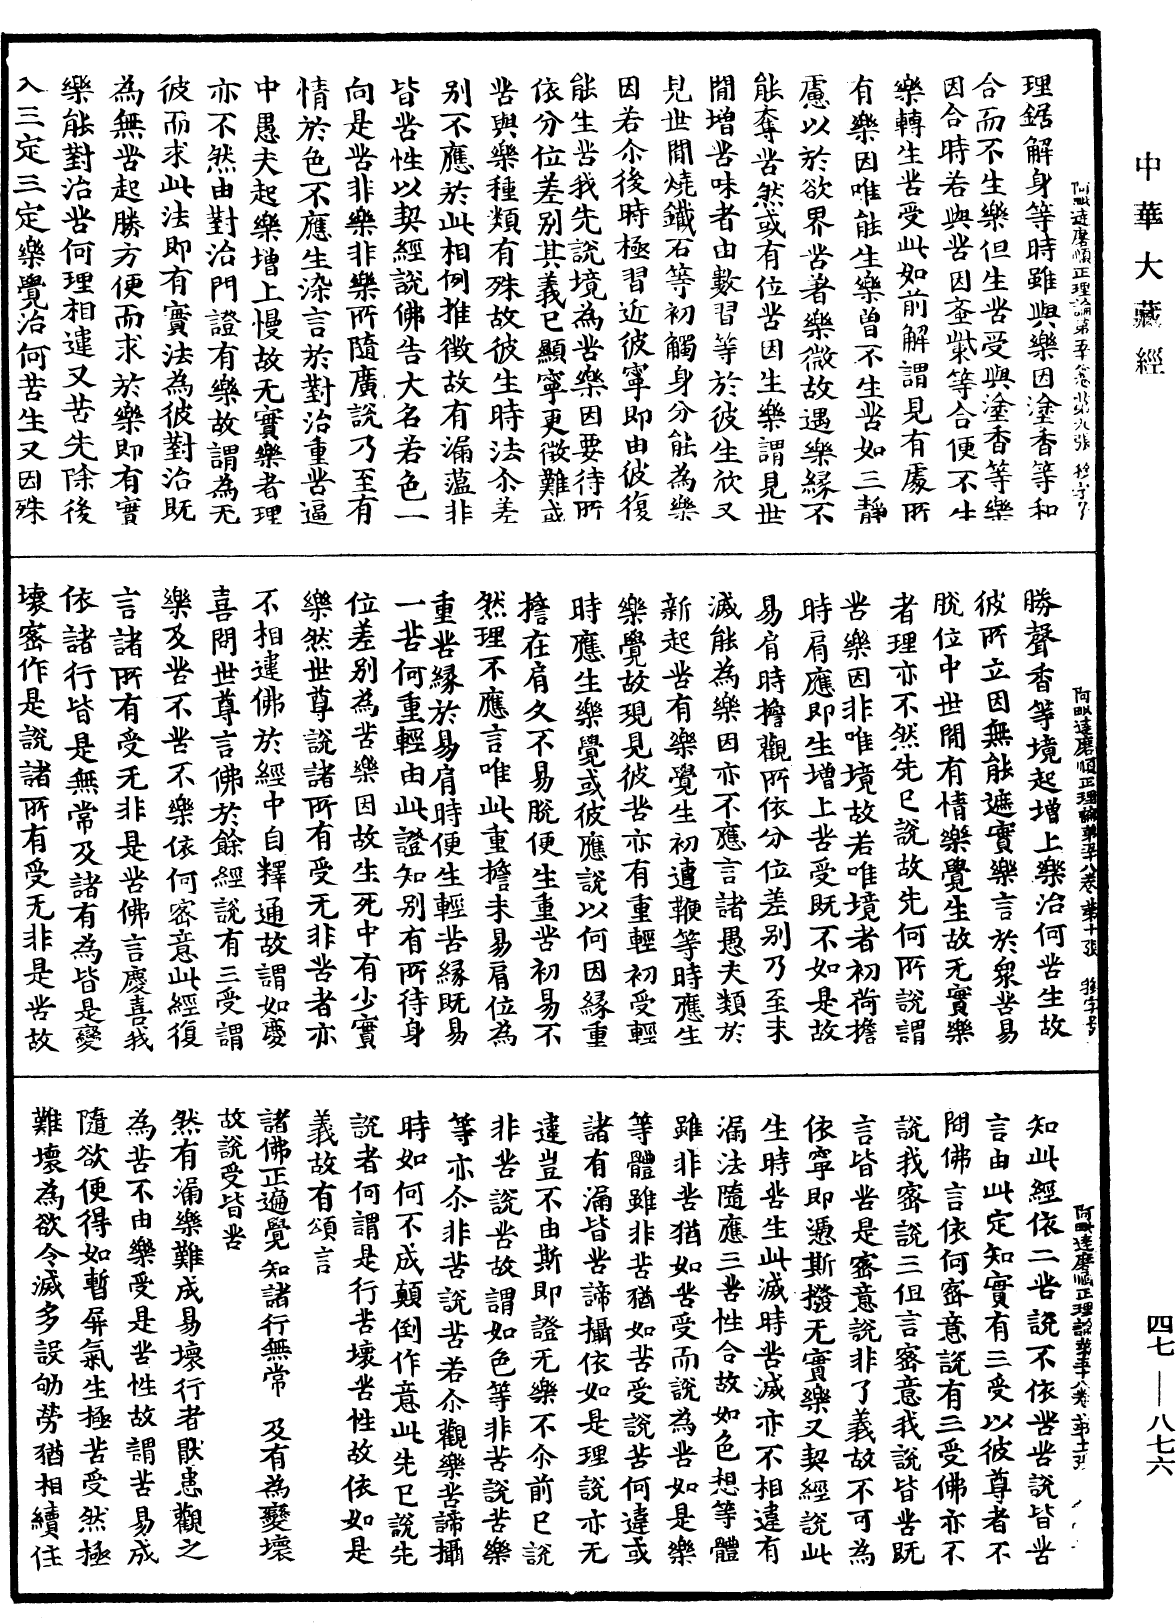 中華大藏經
理鋸解身等時雖與樂因塗香等和
合而不生樂但生苦受與塗香等樂
因合時若與苦因蚉蟣等合便不生
樂轉生苦受此如前解謂見有處所
有樂因唯能生樂曾不生苦如三靜
慮以於欲界苦著樂微故遇樂緣不
能奪苦然或有位苦因生樂謂見世
間增苦味者由數習等於彼生欣又
見世間燒鐵石等初觸身分能為樂
因若尒後時極習近彼寧即由彼復
能生苦我先說境為苦樂因要待所
依分位差別其義已顯寧更徵難或
苦與樂種類有殊故彼生時法尒差
別不應於此相例推徵故有漏蘊非
皆苦性以契經說佛告大名若色一
向是苦非樂非樂所隨廣說乃至有
情於色不應生染言於對治重苦逼
中愚夫起樂增上慢故无實樂者理
亦不然由對治門證有樂故謂為无
彼而求此法即有實法為彼對治既
為無苦起勝方便而求於樂即有實
樂能對治苦何理相違又苦先除後
入三定三定樂覺治何苦生又因殊
阿毗達磨順正理論第五
勝聲香等境起增上樂治何苦生故
彼所立因無能遮實樂言於衆苦易
脫位中世間有情樂覺生故无實樂
者理亦不然先已說故先何所說謂
苦樂因非唯境故若唯境者初荷擔
時肩應即生增上苦受既不如是故
易肩時擔觀所依分位差別乃至未
滅能為樂因亦不應言諸愚夫類於
新起苦有樂覺生初遭鞭等時應生
樂覺故現見彼苦亦有重輕初受輕
時應生樂覺或彼應說以何因緣重
擔在肩久不易脫便生重苦初易不
然理不應言唯此重擔未易肩位為
重苦緣於易肩時便生輕苦緣既易
一苦何重輕由此證知別有所待身
位差別為苦樂因故生死中有少實
樂然世尊說諸所有受无非苦者亦
不相違佛於經中自釋通故謂如慶
喜問世尊言佛於餘經說有三受謂
樂及苦不苦不樂依何密意此經復
言諸所有受无非是苦佛言慶喜我
依諸行皆是無常及諸有為皆是變
壞密作是說諸所有受无非是苦故
阿毗達磨順正理論第五十八卷 第十張
知此經依二苦說不依苦苦說皆苦
言由此定知實有三受以彼尊者不
問佛言依何密意說有三受佛亦不
說我密說三但言密意我說皆苦既
言皆苦是密意說非了義故不可為
依寧即憑斯撥无實樂又契經說此
生時苦生此滅時苦滅亦不相違有
漏法隨應三苦性合故如色想等體
雖非苦猶如苦受而說為苦如是樂
等體雖非苦猶如苦受說苦何違或
諸有漏皆苦諦攝依如是理說亦无
違豈不由斯即證无樂不尒前已說
非苦說苦故謂如色等非苦說苦樂
等亦尒非苦說苦若尒觀樂苦諦攝
時如何不成顛倒作意此先已說先
說者何謂是行苦壞苦性故依如是
義故有頌言
諸佛正遍覺　知諸行無常　及有為變壞
故說受皆苦
然有漏樂難成易壞行者厭患觀之
為苦不由樂受是苦性故謂苦易成
隨欲便得如暫屏氣生極苦受然極
難壞為欲令滅多設劬勞猶相續住
阿毗達磨順正理論第五十八卷 第十一張
四七——八七六